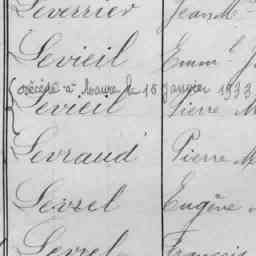 Leverrier Jean M.
Levieil Emm.l J
décédé à Maure le 16 janvier 1933
Levieil Pierre M
Levraud Pierre M
Levrel Eugène
Levrel François